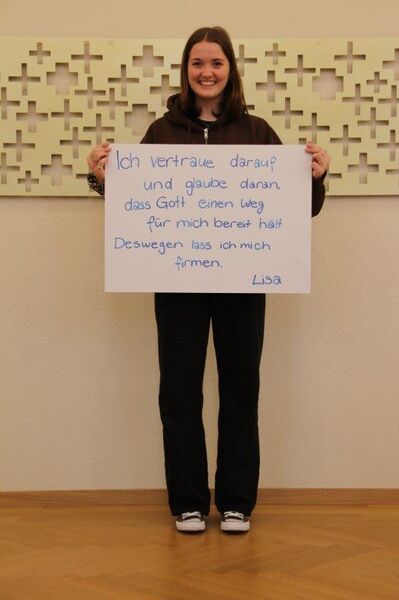 Ich vertraue darauf
und glaube daran,
dass Gott einen Weg
für mich bereit hält
Deswegen lass ich mich
firmen.
Lisa